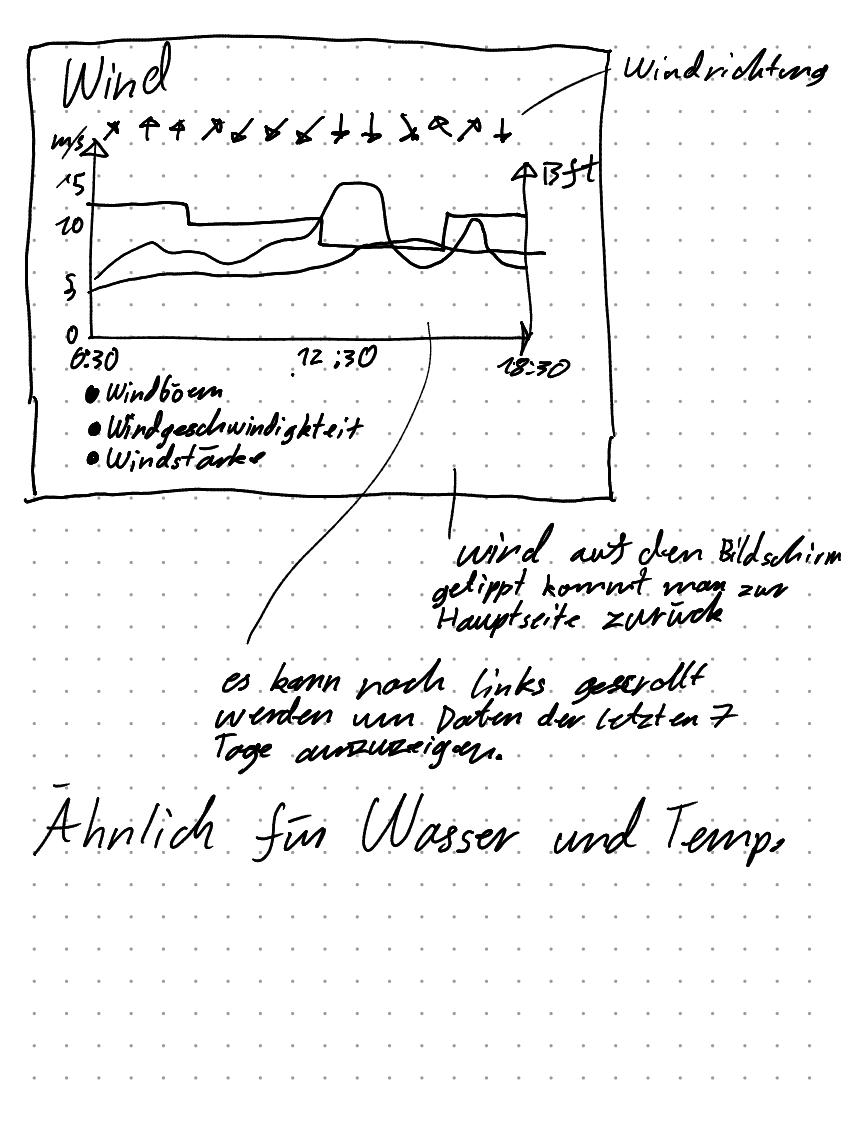 Wind
Windrichtung
m/s
Bft
15
10
5
0
6:30
12:30
18:30
Windböen
Windgeschwindigkeit
Windstärke
wird auf den Bildschirm
getippt kommt man zur
Hauptseite zurück
es kann nach links gescrollt
werden um Daten der letzten 7
Tage anzuzeigen.
Ähnlich für Wasser und Temp.